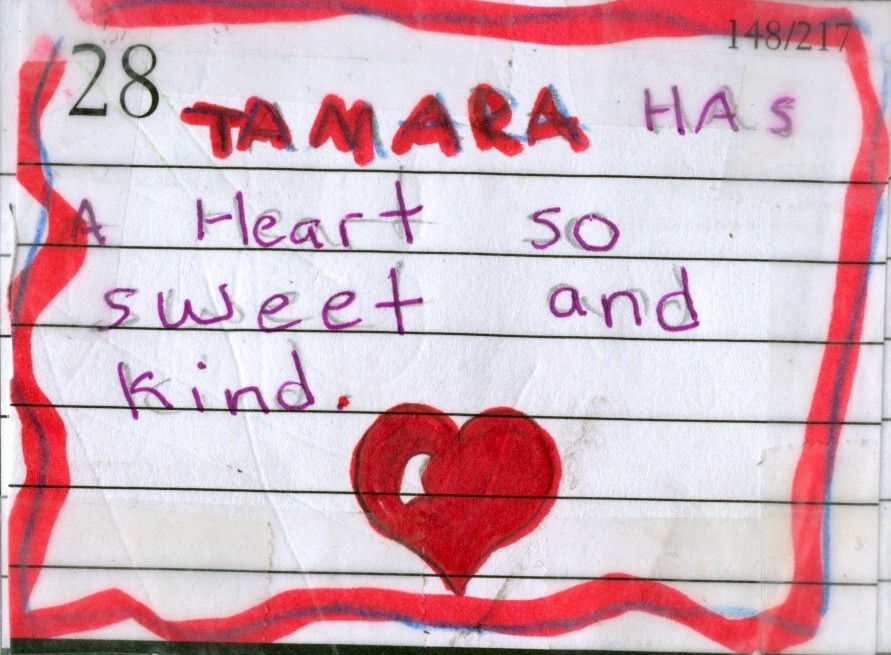 148/217
28 TAMARA HAS
A Heart so
sweet and
kind.